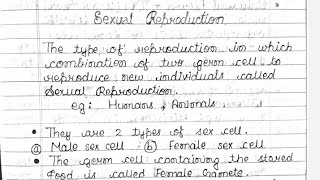 Sexual Reproduction
The type of reproduction in which
combination of two germ cell to
reproduce new individuals called
Sexual Reproduction.
eg: Humans, Animals.
• They are 2 types of sex cell.
ⓐ Male sex cell ⓑ Female sex cell
• The germ cell containing the stored
food is called Female Gamete.